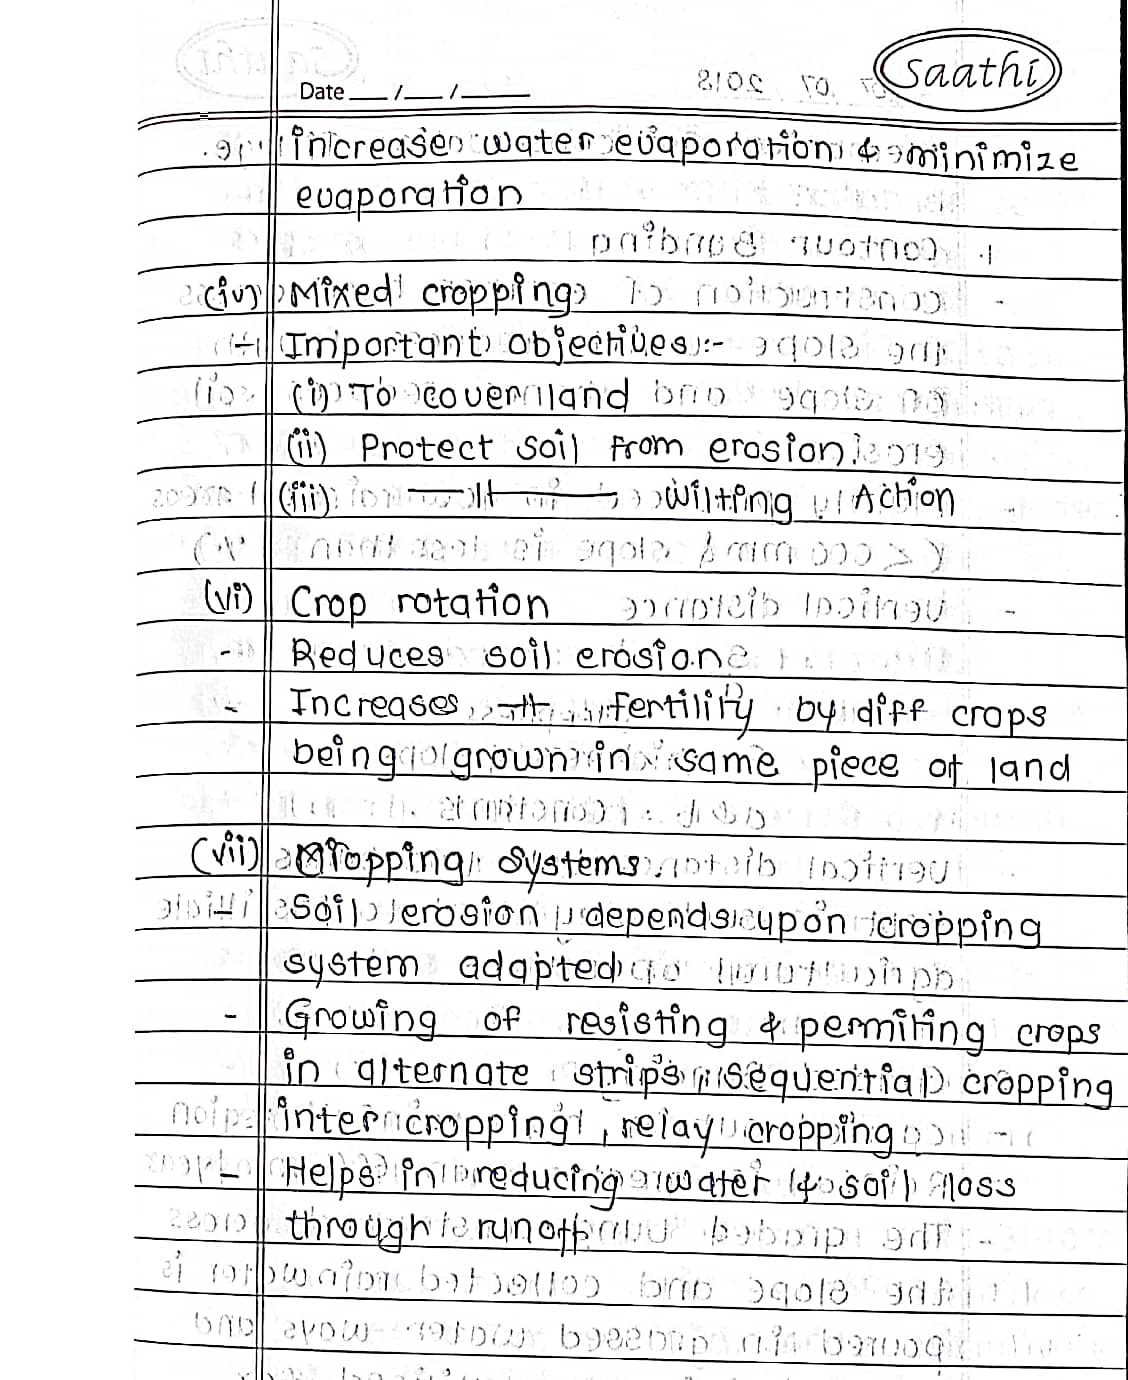 saathi
Date __/__/____
increase water evaporation & minimize
evaporation
(iv) Mixed cropping
- Important objectives :-
(i) To cover land
(ii) Protect soil from erosion
(iii) Wilting Action
(vi) Crop rotation
- Reduces soil erosion
- Increases fertility by diff crops
being grown in same piece of land
(vii) Cropping Systems
Soil erosion depends upon cropping
system adapted
- Growing of resisting & permiting crops
in alternate strips sequential cropping
inter cropping, relay cropping
- Helps in reducing water & soil loss
through runoff